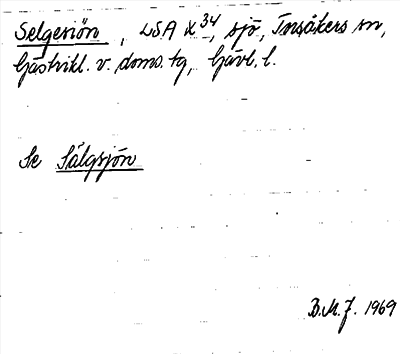 Selgesiön, LSA X 34, sjö, Torsåkers sn,
Gästrikl. v. doms. tg, Gävl. l.
Se Sälgsjön
B.M.J. 1969